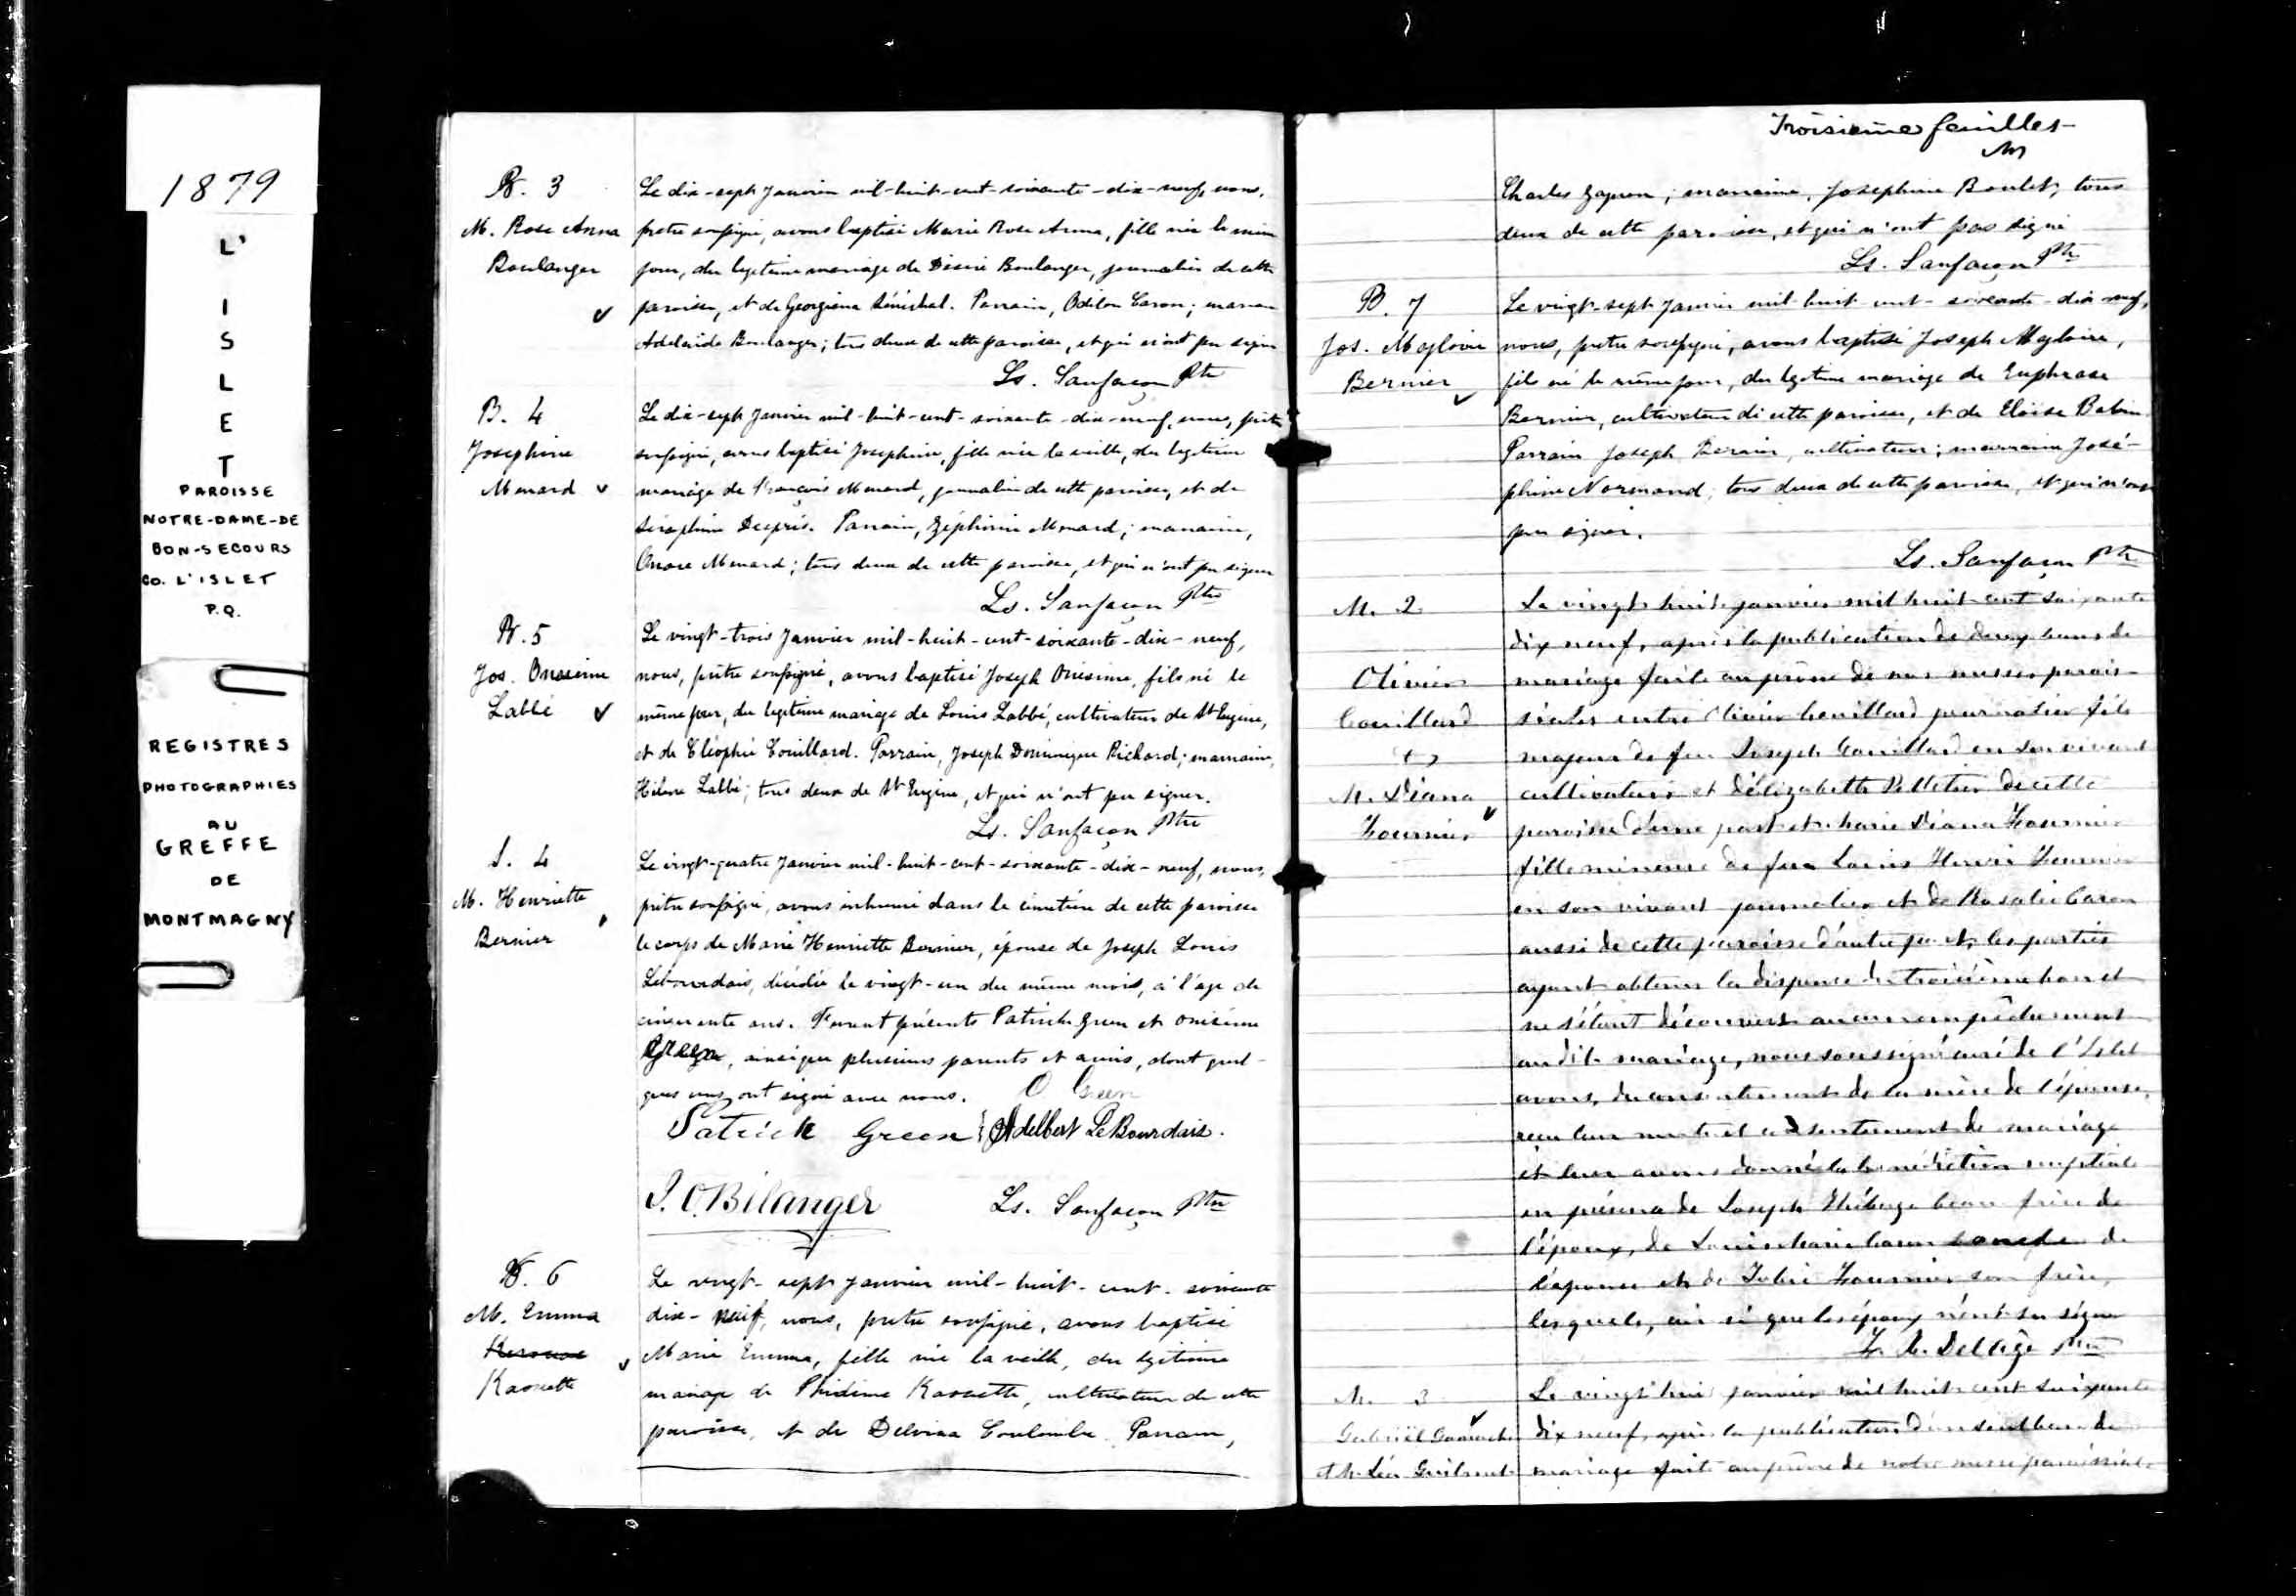 1879
L'
I
S
L
E
T
PAROISSE
NOTRE-DAME-DE
BON-SECOURS
CO. L'ISLET
P.Q.
REGISTRES
PHOTOGRAPHIES
AU
GREFFE
DE
MONTMAGNY
B. 3
M. Rose Anna
Boulanger
Le dix-sept Janvier mil-huit-cent-soixante-dix-neuf, nous,
prêtre soussigné, avons baptisé Marie Rose Anna, fille née le même
jour, du légitime mariage de Désiré Boulanger, journalier de cette
paroisse, et de Georgiana Sénéchal. Parrain, Odilon Caron; marraine
Adelaïde Boulanger; tous deux de cette paroisse, et qui n'ont pu signer
Ls. Sanfaçon Ptre
B. 4
Josephine
Menard
Le dix-sept Janvier mil-huit-cent-soixante-dix-neuf, nous, prêtre
soussigné, avons baptisé Josephine, fille née la veille, du légitime
mariage de François Menard, journalier de cette paroisse, et de
Séraphine Després. Parrain, Zéphirin Menard; marraine,
Menard; tous deux de cette paroisse, et qui n'ont pu signer
Ls. Sanfaçon Ptre
B. 5
Jos. Onesime
Labbé
Le vingt-trois Janvier mil-huit-cent-soixante-dix-neuf,
nous, prêtre soussigné, avons baptisé Joseph Onésime, fils né le
même jour, du légitime mariage de Louis Labbé, cultivateur de St Eugène,
et de Cléophie Couillard. Parrain, Joseph Dominique Richard; marraine,
Hélène Labbé; tous deux de St Eugène, et qui n'ont pu signer.
Ls. Sanfaçon Ptre
S. 4
M. Henriette
Bernier
Le vingt-quatre Janvier mil-huit-cent-soixante-dix-neuf, nous,
prêtre soussigné, avons inhumé dans le cimetière de cette paroisse
le corps de Marie Henriette Bernier, épouse de Joseph Louis
Lebourdais, décédée le vingt-un du même mois, à l'âge de
cinquante ans. Furent présents Patrick Green et Onésime
Green, ainsi que plusieurs parents et amis, dont quel-
ques uns ont signé avec nous. O Green
Patrick Green Adelbert LeBourdais.
J. O. Bélanger Ls. Sanfaçon Ptre
B. 6
M. Emma
Kerouac
Kaouette
Le vingt-sept Janvier mil-huit-cent-soixante
dix-neuf, nous, prêtre soussigné, avons baptisé
Marie Emma, fille née la veille, du légitime
mariage de Phidime Kaouette, cultivateur de cette
paroisse, et de Delvina Coulombe. Parrain,
Troisième feuillet
Charles Gagnon; marraine, Josephine Boulet, tous
deux de cette paroisse, et qui n'ont pas signé
Ls. Sanfaçon Ptre
B. 7
Jos. Magloire
Bernier
Le vingt-sept Janvier mil-huit-cent-soixante-dix-neuf,
nous, prêtre soussigné, avons baptisé Joseph Magloire,
fils né le même jour, du légitime mariage de Euphrase
Bernier, cultivateur de cette paroisse, et de Eloïse Babin
Parrain Joseph Bernier, cultivateur; marraine José-
phine Normand; tous deux de cette paroisse, et qui n'ont
pu signer.
Ls. Sanfaçon Ptre
M. 2
Olivier
Couillard
&
M. Diana
Fournier
Le vingt huit janvier mil huit cent soixante
dix neuf, après la publication de deux bans de
mariage faite au prône de nos messes parois-
siales entre Olivier Couillard journalier fils
majeur de feu Joseph Couillard en son vivant
cultivateur et d'Elizabeth Pelletier de cette
paroisse d'une part et Marie Diana Fournier
fille mineure de feu Louis Henri Fournier
en son vivant journalier et de Rosalie Caron
aussi de cette paroisse d'autre part, les parties
ayant obtenu la dispense du troisième ban et
ne s'étant découvert aucun empêchement
au dit mariage, nous soussigné curé de l'Islet
avons, du consentement de la mère de l'épouse,
reçu leur mutuel consentement de mariage
et leur avons donné la bénédiction nuptiale
en présence de Joseph Théberge beau frère de
l'époux, de Louis Marie Caron oncle de
l'épouse et de Fournier son frère,
lesquels, ainsi que les époux n'ont su signer
F. X. Delâge Ptre
M. 3
Gabriel Gamache
et M. Léa Guilmet
Le vingt huit janvier mil huit cent soixante
dix neuf, après la publication d'un seul ban de
mariage faite au prône de notre messe paroissiale